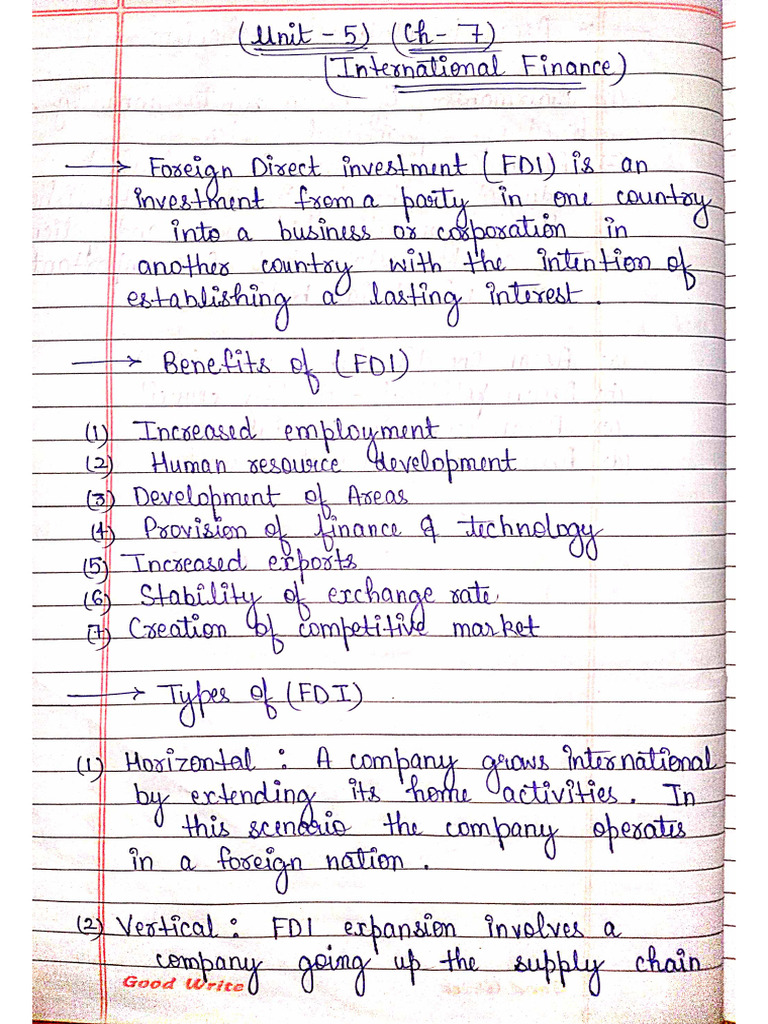 (Unit - 5) (Ch - 7)
(International Finance)
→ Foreign Direct investment (FDI) is an
investment from a party in one country
into a business or corporation in
another country with the intention of
establishing a lasting interest.
→ Benefits of (FDI)
(1) Increased employment
(2) Human resource development
(3) Development of Areas
(4) Provision of finance & technology
(5) Increased exports
(6) Stability of exchange rate
(7) Creation of competitive market
→ Types of (FDI)
(1) Horizontal : A company grows international
by extending its home activities. In
this scenario the company operates
in a foreign nation.
(2) Vertical : FDI expansion involves a
company going up the supply chain
Good Write